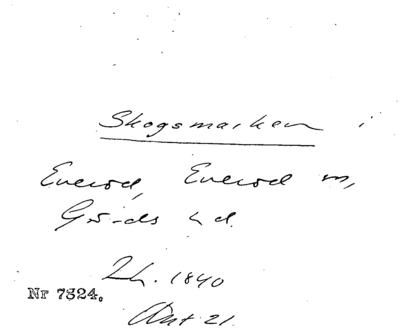 Skogsmarken i
Everöd, Everöd sn,
Gärds hd.
Lh. 1840
Nr 7324.
Akt 21.